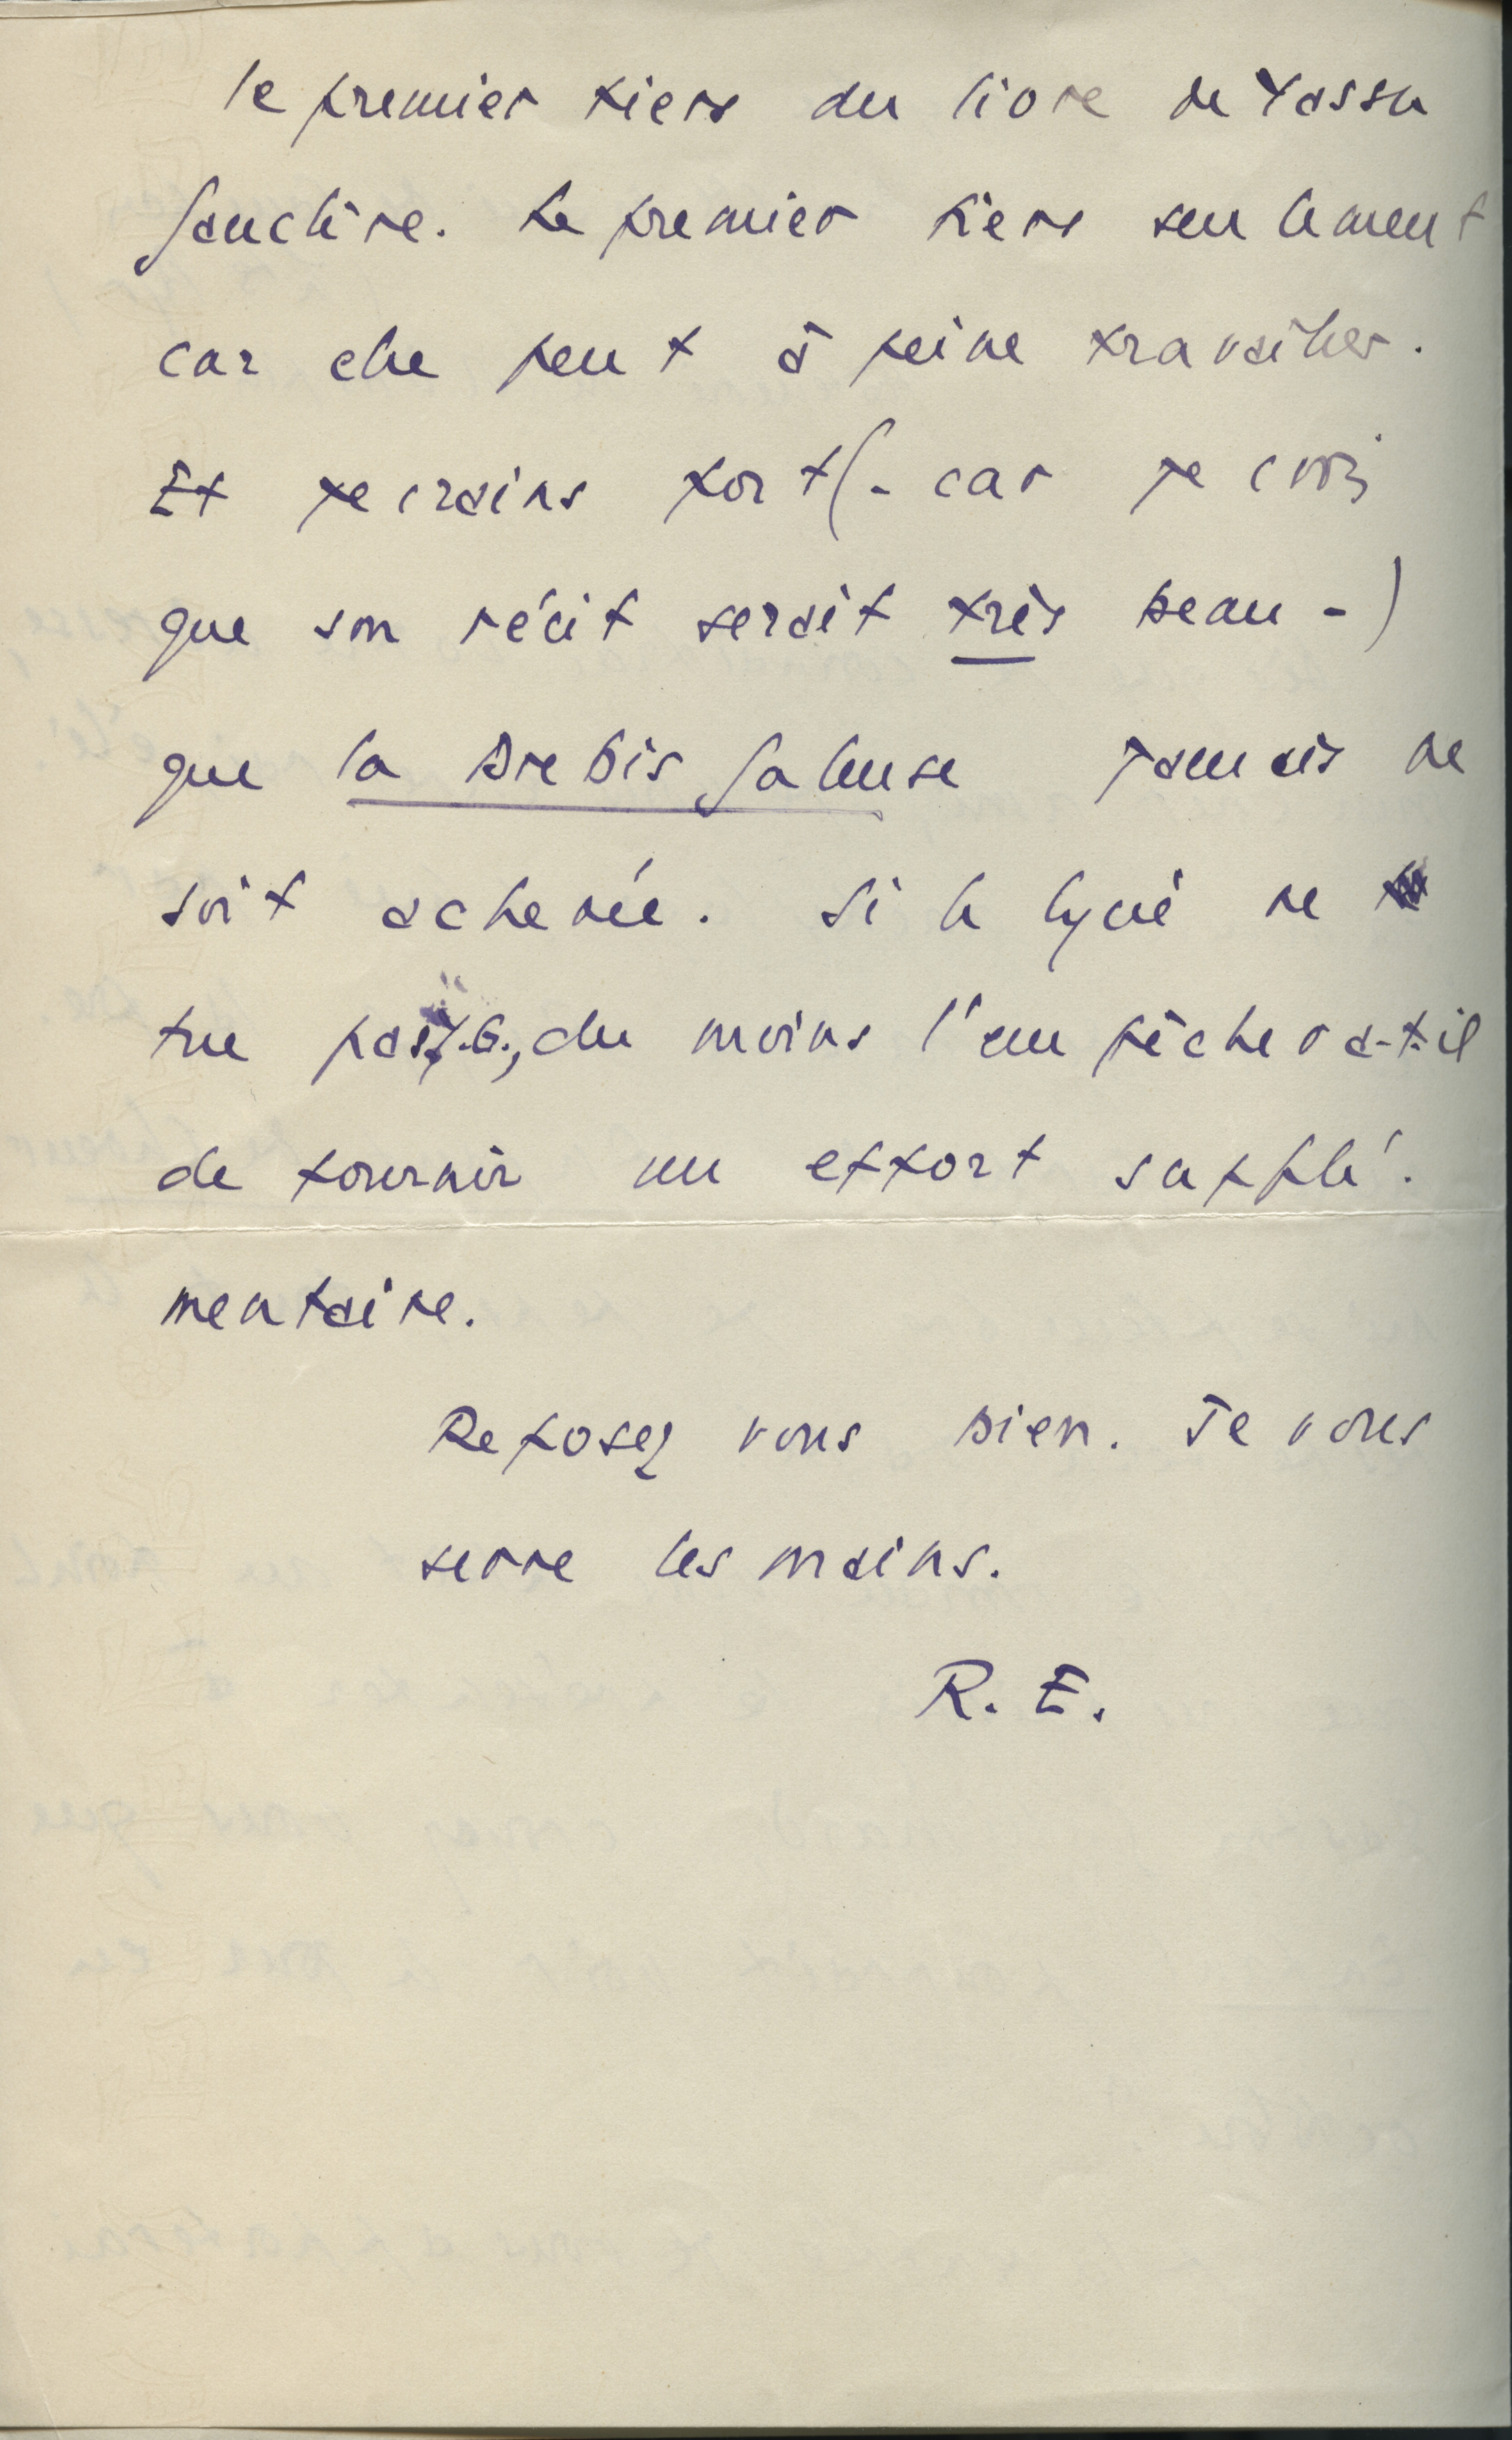 le premier tiers du livre de Yassu
Gauclère. Le premier tiers seulement
car elle peut à peine travailler.
Et je crains fort (- car je crois
que son récit serait très beau -)
que la Brebis Galeuse jamais ne
soit achevée. Si le lycée ne
tue pas Y.G., du moins l'empêchera-t-il
de fournir un effort supplé-
mentaire.
Reposez vous bien. Je vous
serre les mains.
R. E.